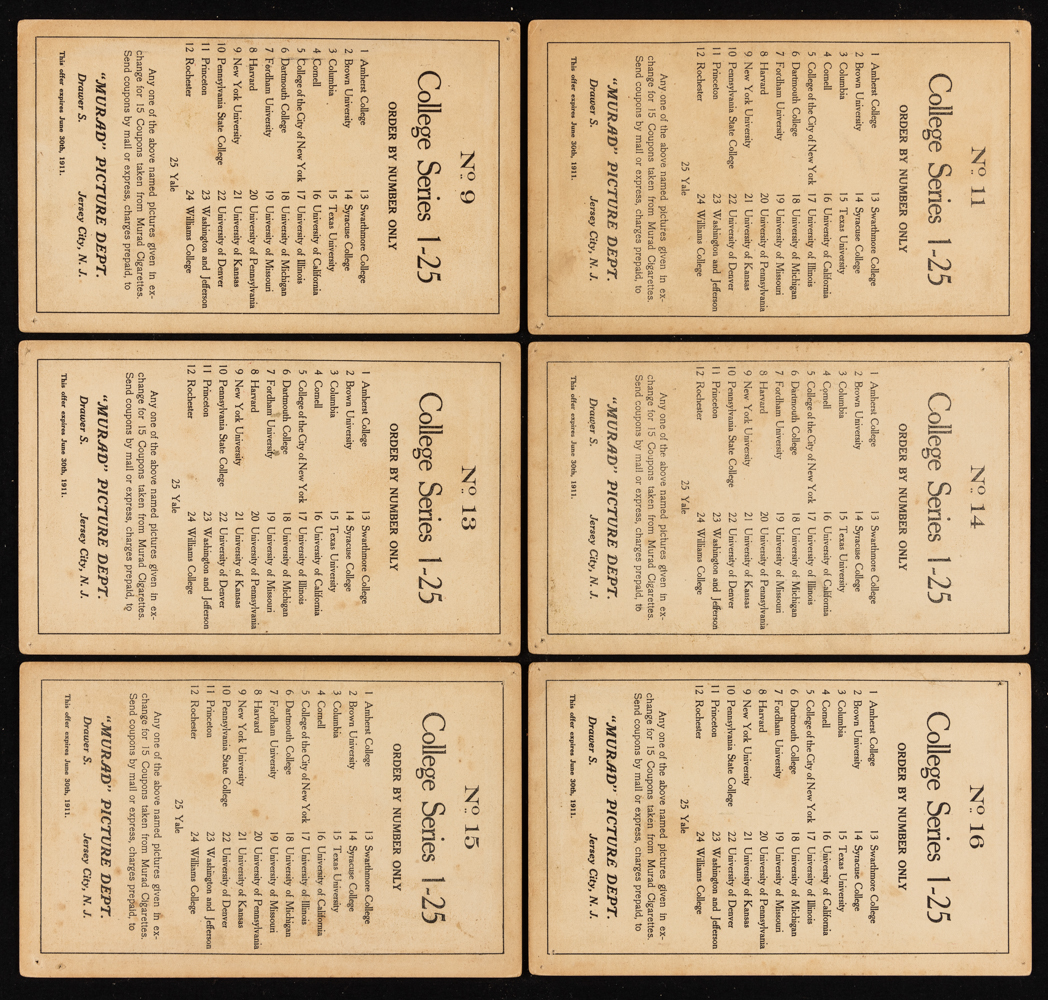 No. 9
College Series 1-25
ORDER BY NUMBER ONLY
1 Amherst College
2 Brown University
3 Columbia
4 Cornell
5 College of the City of New York
6 Dartmouth College
7 Fordham University
8 Harvard
9 New York University
10 Pennsylvania State College
11 Princeton
12 Rochester
13 Swarthmore College
14 Syracuse College
15 Texas University
16 University of California
17 University of Illinois
18 University of Michigan
19 University of Missouri
20 University of Pennsylvania
21 University of Kansas
22 University of Denver
23 Washington and Jefferson
24 Williams College
25 Yale
Any one of the above named pictures given in ex-
change for 15 Coupons taken from Murad Cigarettes.
Send coupons by mail or express, charges prepaid, to
"MURAD" PICTURE DEPT.
Drawer S. Jersey City, N. J.
This offer expires June 30th, 1911.
No. 11
College Series 1-25
ORDER BY NUMBER ONLY
1 Amherst College
2 Brown University
3 Columbia
4 Cornell
5 College of the City of New York
6 Dartmouth College
7 Fordham University
8 Harvard
9 New York University
10 Pennsylvania State College
11 Princeton
12 Rochester
13 Swarthmore College
14 Syracuse College
15 Texas University
16 University of California
17 University of Illinois
18 University of Michigan
19 University of Missouri
20 University of Pennsylvania
21 University of Kansas
22 University of Denver
23 Washington and Jefferson
24 Williams College
25 Yale
Any one of the above named pictures given in ex-
change for 15 Coupons taken from Murad Cigarettes.
Send coupons by mail or express, charges prepaid, to
"MURAD" PICTURE DEPT.
Drawer S. Jersey City, N. J.
This offer expires June 30th, 1911.
No. 13
College Series 1-25
ORDER BY NUMBER ONLY
1 Amherst College
2 Brown University
3 Columbia
4 Cornell
5 College of the City of New York
6 Dartmouth College
7 Fordham University
8 Harvard
9 New York University
10 Pennsylvania State College
11 Princeton
12 Rochester
13 Swarthmore College
14 Syracuse College
15 Texas University
16 University of California
17 University of Illinois
18 University of Michigan
19 University of Missouri
20 University of Pennsylvania
21 University of Kansas
22 University of Denver
23 Washington and Jefferson
24 Williams College
25 Yale
Any one of the above named pictures given in ex-
change for 15 Coupons taken from Murad Cigarettes.
Send coupons by mail or express, charges prepaid, to
"MURAD" PICTURE DEPT.
Drawer S. Jersey City, N. J.
This offer expires June 30th, 1911.
No. 14
College Series 1-25
ORDER BY NUMBER ONLY
1 Amherst College
2 Brown University
3 Columbia
4 Cornell
5 College of the City of New York
6 Dartmouth College
7 Fordham University
8 Harvard
9 New York University
10 Pennsylvania State College
11 Princeton
12 Rochester
13 Swarthmore College
14 Syracuse College
15 Texas University
16 University of California
17 University of Illinois
18 University of Michigan
19 University of Missouri
20 University of Pennsylvania
21 University of Kansas
22 University of Denver
23 Washington and Jefferson
24 Williams College
25 Yale
Any one of the above named pictures given in ex-
change for 15 Coupons taken from Murad Cigarettes.
Send coupons by mail or express, charges prepaid, to
"MURAD" PICTURE DEPT.
Drawer S. Jersey City, N. J.
This offer expires June 30th, 1911.
No. 15
College Series 1-25
ORDER BY NUMBER ONLY
1 Amherst College
2 Brown University
3 Columbia
4 Cornell
5 College of the City of New York
6 Dartmouth College
7 Fordham University
8 Harvard
9 New York University
10 Pennsylvania State College
11 Princeton
12 Rochester
13 Swarthmore College
14 Syracuse College
15 Texas University
16 University of California
17 University of Illinois
18 University of Michigan
19 University of Missouri
20 University of Pennsylvania
21 University of Kansas
22 University of Denver
23 Washington and Jefferson
24 Williams College
25 Yale
Any one of the above named pictures given in ex-
change for 15 Coupons taken from Murad Cigarettes.
Send coupons by mail or express, charges prepaid, to
"MURAD" PICTURE DEPT.
Drawer S. Jersey City, N. J.
This offer expires June 30th, 1911.
No. 16
College Series 1-25
ORDER BY NUMBER ONLY
1 Amherst College
2 Brown University
3 Columbia
4 Cornell
5 College of the City of New York
6 Dartmouth College
7 Fordham University
8 Harvard
9 New York University
10 Pennsylvania State College
11 Princeton
12 Rochester
13 Swarthmore College
14 Syracuse College
15 Texas University
16 University of California
17 University of Illinois
18 University of Michigan
19 University of Missouri
20 University of Pennsylvania
21 University of Kansas
22 University of Denver
23 Washington and Jefferson
24 Williams College
25 Yale
Any one of the above named pictures given in ex-
change for 15 Coupons taken from Murad Cigarettes.
Send coupons by mail or express, charges prepaid, to
"MURAD" PICTURE DEPT.
Drawer S. Jersey City, N. J.
This offer expires June 30th, 1911.